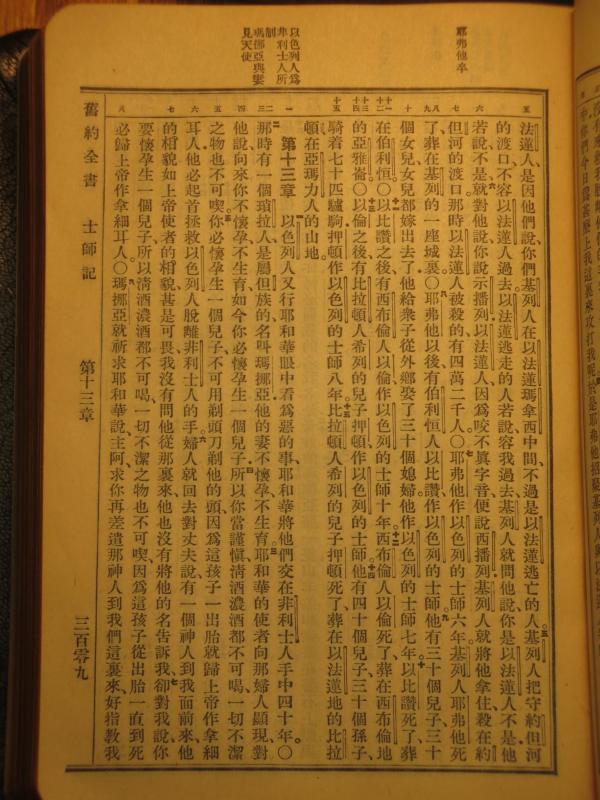 耶弗他卒
以色列人爲
非利士人所
制
瑪挪亞與妻
見天使
法蓮人是因他們說你們基列人在以法蓮瑪拿西中間不過是以法蓮逃亡的人基列人把守約但河
的渡口不容以法蓮人過去以法蓮逃走的人若說容我過去基列人就問他說你是以法蓮人不是他
若說不是就對他說你說示播列以法蓮人因爲咬不眞字音便說西播列基列人就將他拿住殺在約
但河的渡口那時以法蓮人被殺的有四萬二千人〇耶弗他作以色列的士師六年基列人耶弗他死
了葬在基列的一座城裏〇耶弗他以後有伯利恒人以比讚作以色列的士師他有三十個兒子三十
個女兒女兒都嫁出去了他給衆子從外鄉娶了三十個媳婦他作以色列的士師七年以比讚死了葬
在伯利恒〇以比讚之後有西布倫人以倫作以色列的士師十年西布倫人以倫死了葬在西布倫地
的亞雅崙〇以倫之後有比拉頓人希列的兒子押頓作以色列的士師他有四十個兒子三十個孫子
騎着七十匹驢駒押頓作以色列的士師八年比拉頓人希列的兒子押頓死了葬在以法蓮地的比拉
頓在亞瑪力人的山地。
第十三章 以色列人又行耶和華眼中看爲惡的事耶和華將他們交在非利士人手中四十年。〇
那時有一個瑣拉人是屬但族的名叫瑪挪亞他的妻不懷孕不生育耶和華的使者向那婦人顯現對
他說向來你不懷孕不生育如今你必懷孕生一個兒子所以你當謹愼淸酒濃酒都不可喝一切不潔
之物也不可喫你必懷孕生一個兒子不可用剃頭刀剃他的頭因爲這孩子一出胎就歸上帝作拿細
耳人他必起首拯救以色列人脫離非利士人的手婦人就回去對丈夫說有一個神人到我面前來他
的相貌如上帝使者的相貌甚是可畏我沒有問他從那裏來他也沒有將他的名吿訴我卻對我說你
要懷孕生一個兒子所以淸酒濃酒都不可喝一切不潔之物也不可喫因爲這孩子從出胎一直到死
必歸上帝作拿細耳人〇瑪挪亞就祈求耶和華說主阿求你再差遣那神人到我們這裏來好指教我
舊約全書 士師記 第十三章 三百零九